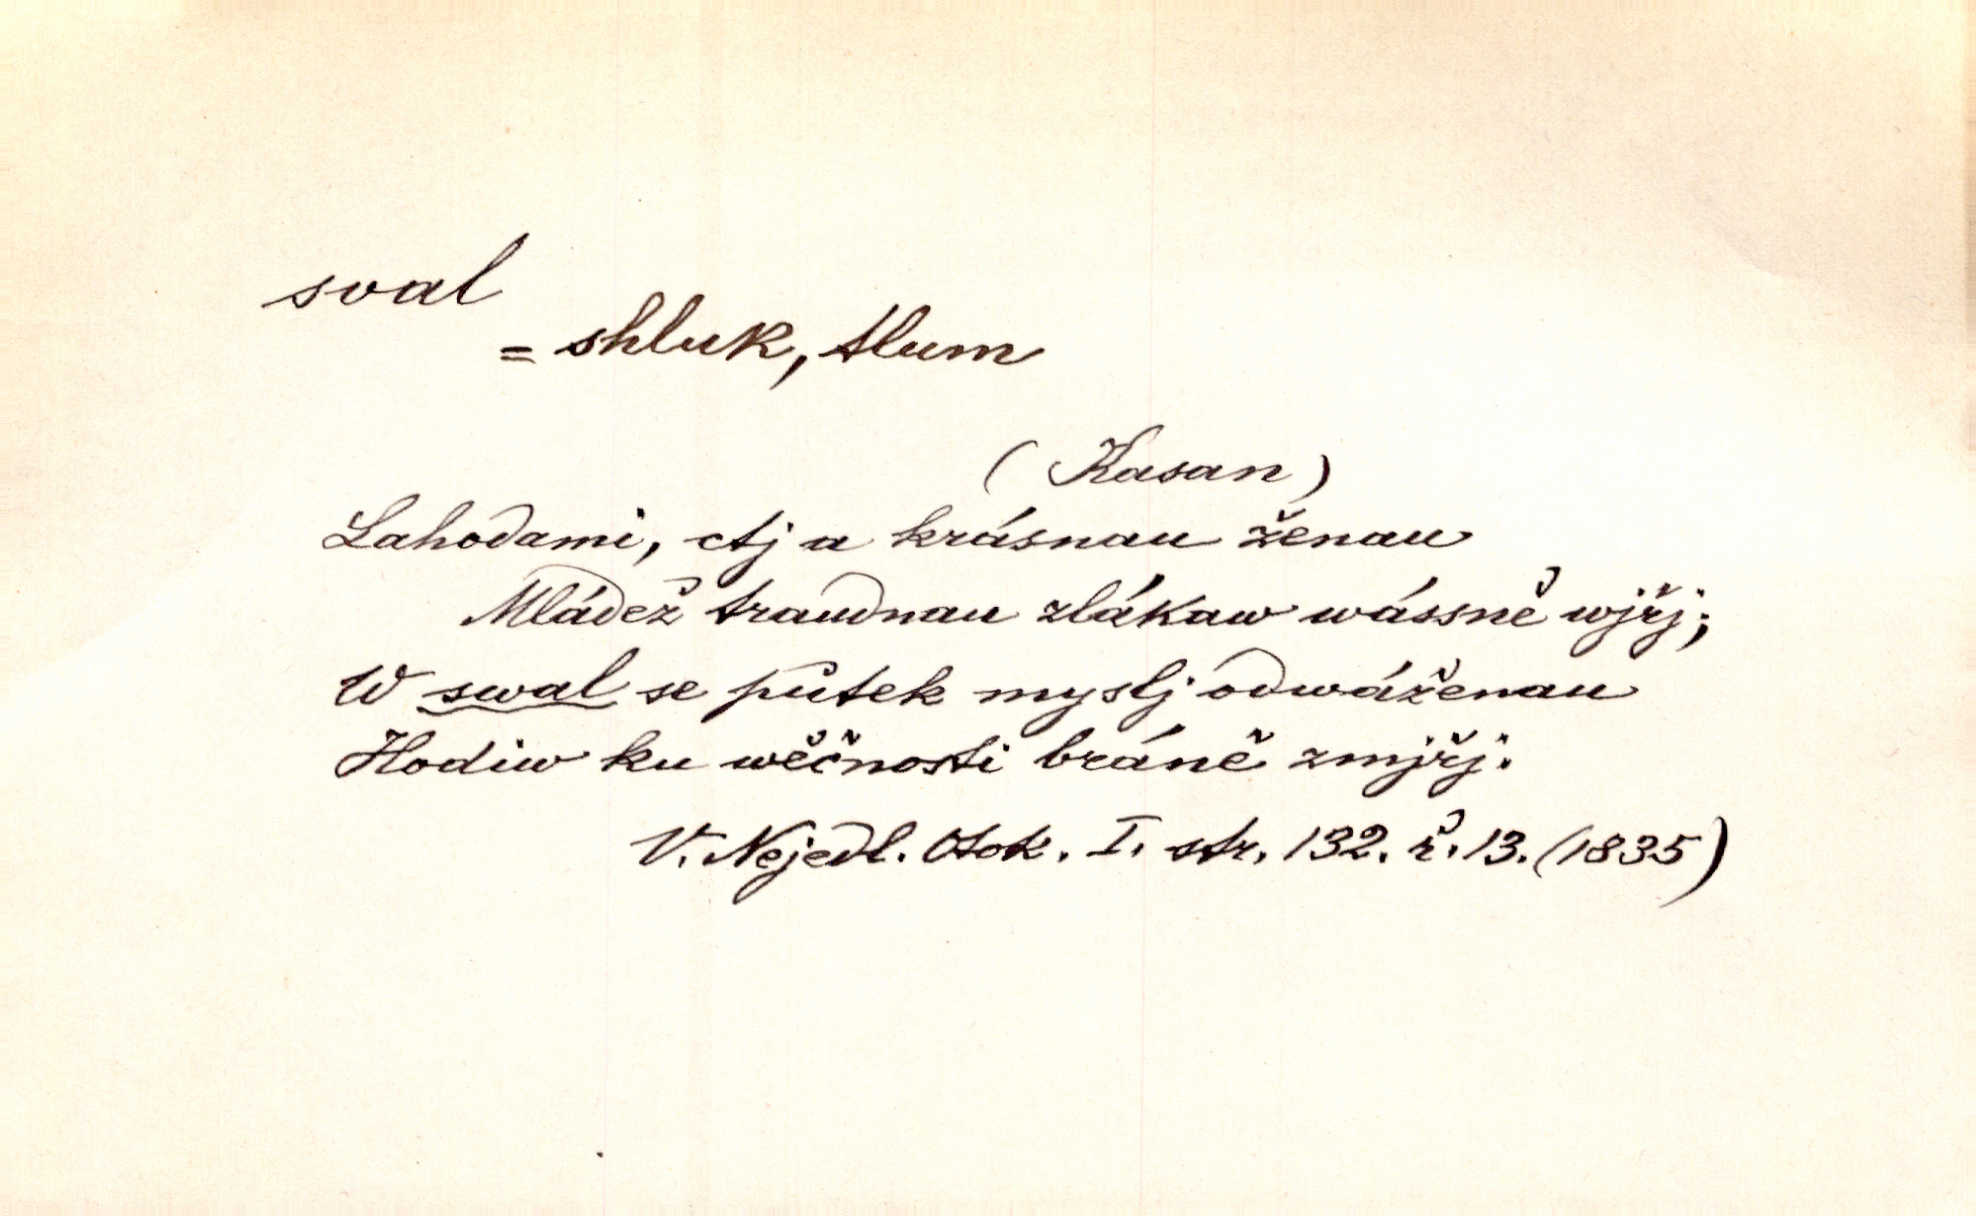 sval
= shluk, tlum
( Kasan )
Lahodami, ctj a krásnau ženau
Mládež traudnau zlákaw wássně wjřj;
W swal se půtek myslj odwáženau
Hodiw ku wěčnosti bráně zmjřj.
V. Nejedl. Otok. I. str. 132. ř. 13. (1835)